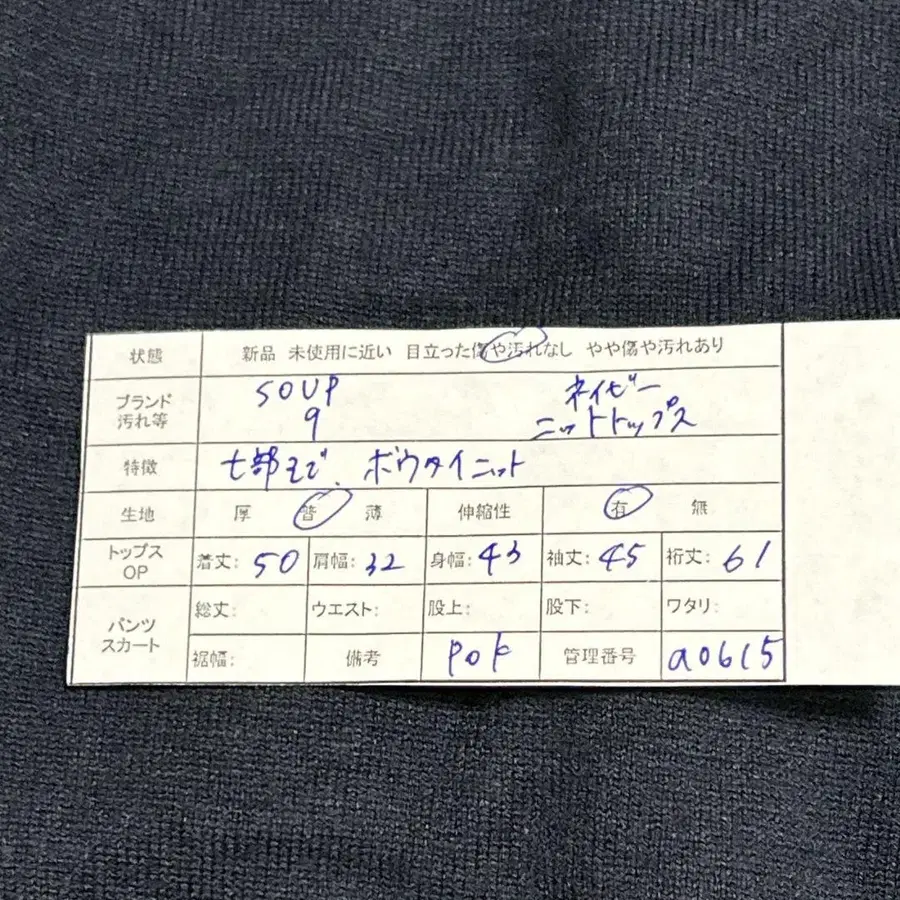 状態 新品 未使用に近い 目立った傷や汚れなし やや傷や汚れあり
ブランド 汚れ等 SOUP ネイビー
9 ニットトップス
特徴 七部まで、ボウタイニット
生地 厚 普 薄 伸縮性 有 無
トップス OP 着丈: 50 肩幅: 32 身幅: 43 袖丈: 45 裄丈: 61
パンツ スカート 総丈: ウエスト: 股上: 股下: ワタリ:
裾幅: 備考 POK 管理番号 a0615